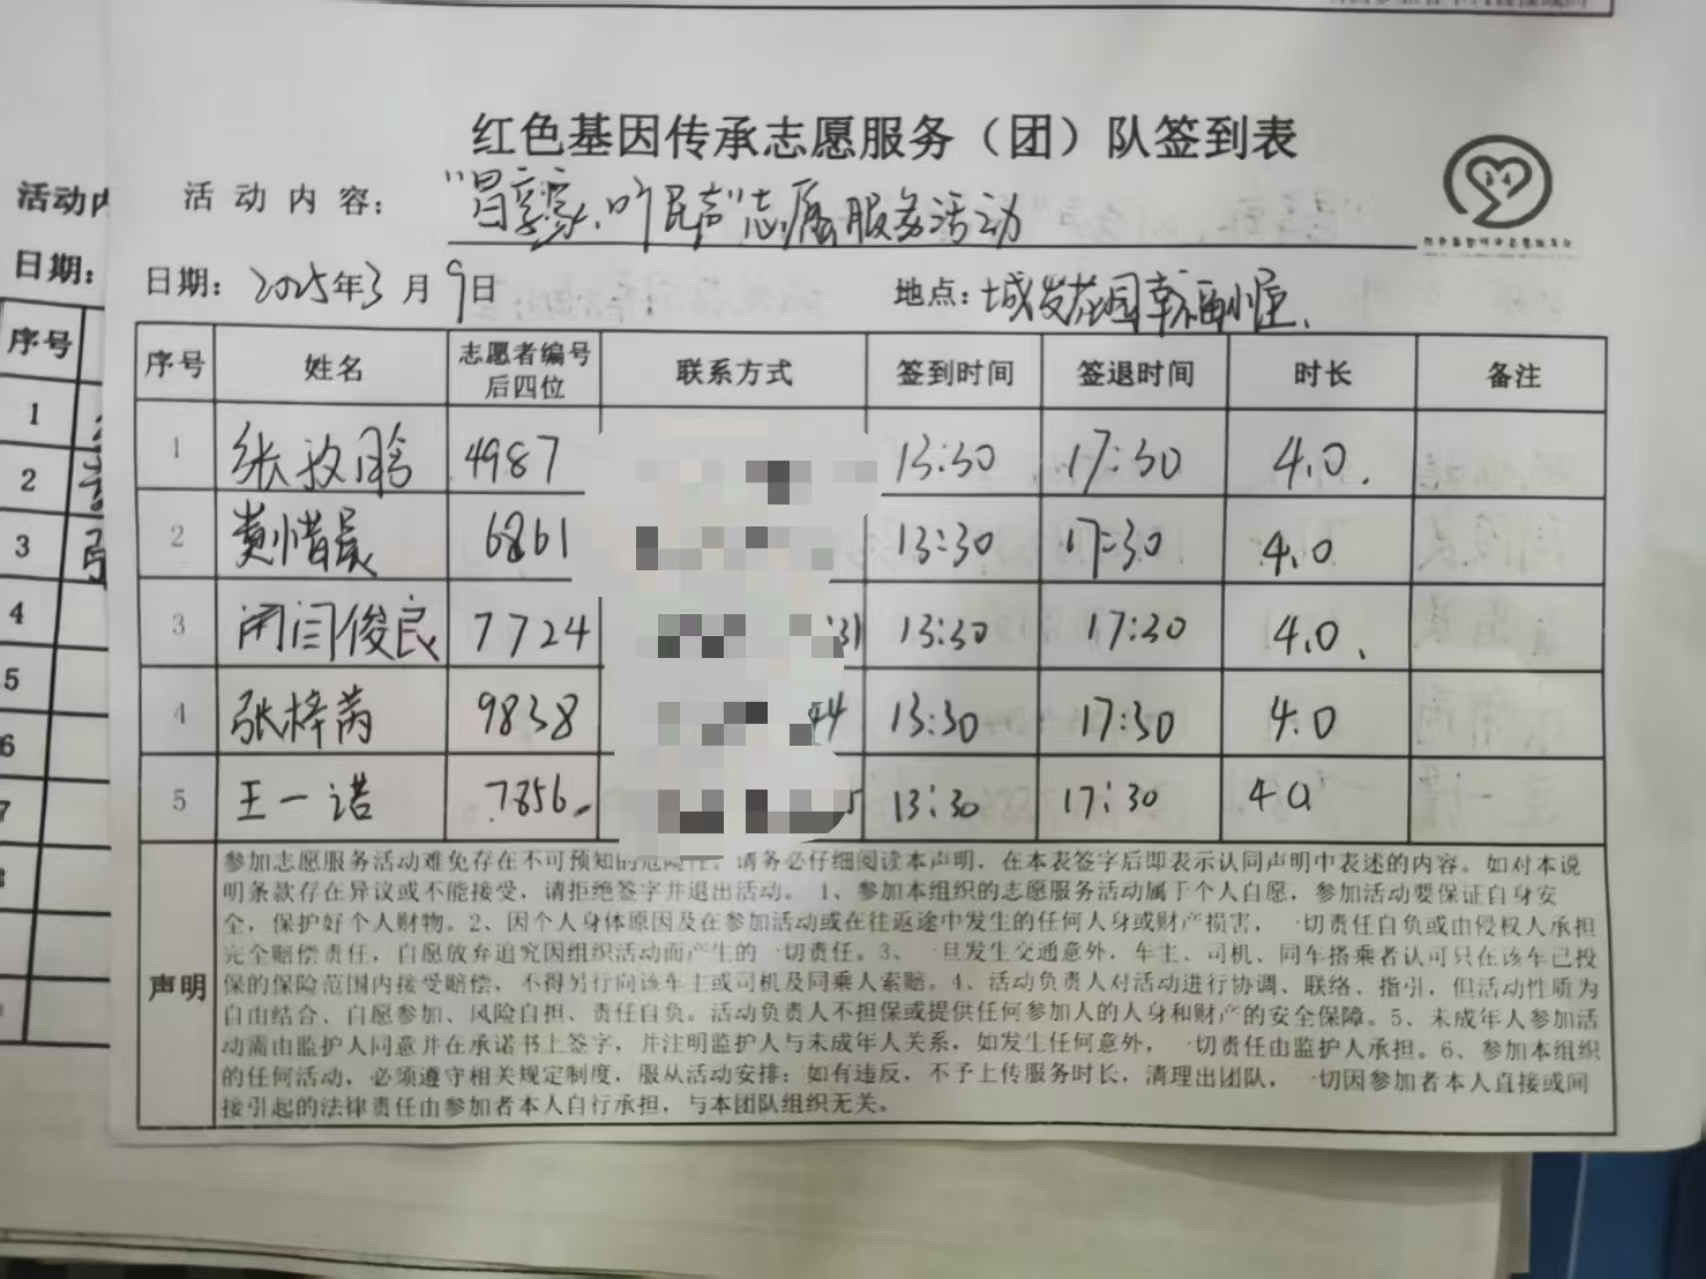 红色基因传承志愿服务（团）队签到表
活动内容：听民声"志愿服务活动
日期：2025年3月9日 地点：城发花园幸福小
序号 姓名 志愿者编号后四位 联系方式 签到时间 签退时间 时长 备注
1 张 4987 13:30 17:30 4.0.
2 黄惜晨 6861 13:30 17:30 4.0
3 闫俊良 7724 13:30 17:30 4.0.
4 张梓芮 9838 44 13:30 17:30 4.0
5 王一诺 7856. 13:30 17:30 4.0
声明
参加志愿服务活动难免存在不可预知的危险性，请务必仔细阅读本声明，在本表签字后即表示认同声明中表述的内容。如对本说
明条款存在异议或不能接受，请拒绝签字并退出活动。1、参加本组织的志愿服务活动属于个人自愿，参加活动要保证自身安
全，保护好个人财物。2、因个人身体原因及在参加活动或在往返途中发生的任何人身或财产损害，一切责任自负或由侵权人承担
完全赔偿责任，自愿放弃追究因组织活动而产生的一切责任。3、一旦发生交通意外，车主、司机、同车搭乘者认可只在该车已投
保的保险范围内接受赔偿，不得另行向该车主或司机及同乘人索赔。4、活动负责人对活动进行协调、联络、指引，但活动性质为
自由结合、自愿参加、风险自担、责任自负。活动负责人不担保或提供任何参加人的人身和财产的安全保障。5、未成年人参加活
动需由监护人同意并在承诺书上签字，并注明监护人与未成年人关系，如发生任何意外，一切责任由监护人承担。6、参加本组织
的任何活动，必须遵守相关规定制度，服从活动安排；如有违反，不予上传服务时长，清理出团队，一切因参加者本人直接或间
接引起的法律责任由参加者本人自行承担，与本团队组织无关。
活动内
日期：
序号
1
2
3
4
5
6
7